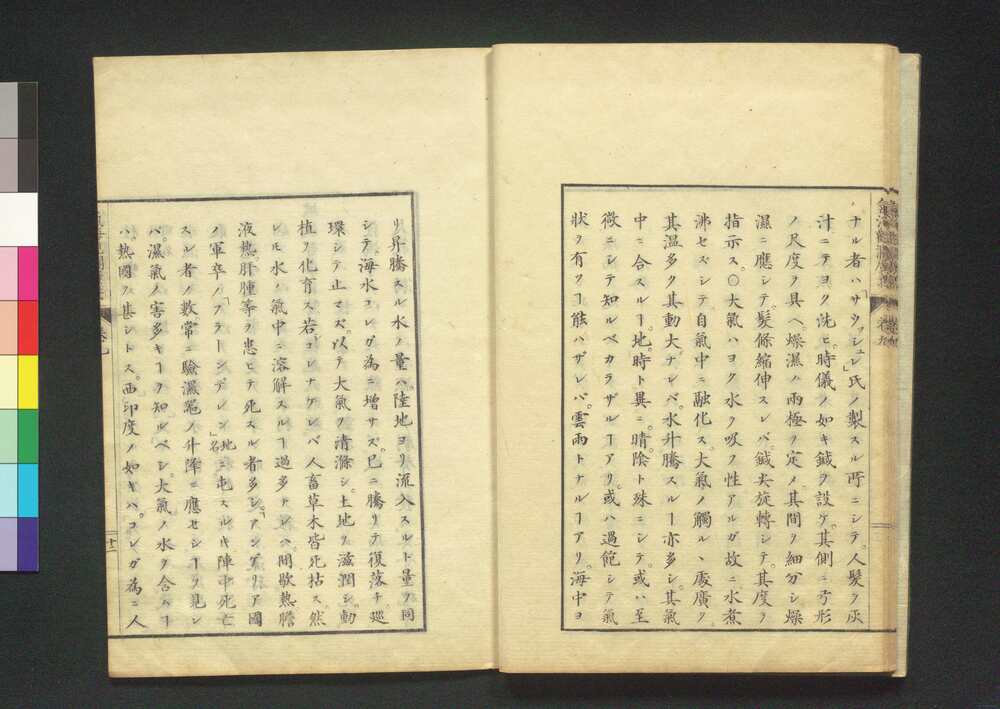 ナル者ハ「サウッシュレ」氏ノ製スル所ニシテ。人髪ヲ灰
汁ニテヨク洗ヒ。時儀ノ如キ鍼ヲ設ゲ。其側ニ弓形
ノ尺度ヲ具ヘ燥濕ノ兩極ヲ定メ其間ヲ細分シ燥
濕ニ應シテ。髪條縮伸スレバ。鍼尖旋轉シテ。其度ヲ
指示ス。〇大氣ハヨク水ヲ吸フ性アルガ故ニ水煮
沸セズシテ自氣中ニ融化ス大氣ノ觸ルヽ處廣ク
其温多ク其動大ナレバ。水升騰スルヿ亦多シ。其氣
中ニ合スルヿ。地。時ト異ニ。晴。陰ト殊ニシテ。或ハ至
微ニシテ知ルベカラザルヿアリ。或ハ過飽シテ氣
状ヲ有ツヿ能ハザレバ。雲雨トナルヿアリ。海中ヨ
リ昇騰スル水ノ量ハ。陸地ヨリ流入スルト量ヲ同
シテ海水コレガ為ニ増サズ。已ニ騰リテ復落チ廻
環シテ止マズ。以テ大氣ヲ清滌シ。土地ヲ滋潤シ。動
植ヲ化育ス若コレナケレバ人畜草木皆死枯ス。然
レモ水ノ氣中ニ溶解スルヿ過多ナレバ。間歇熱膽
液熱。肝腫等ヲ患ヒテ死スル者多シ。「アンゲリア國
ノ軍卒ノ「フラーンデレン」地名ニ屯スルキ陣中死亡
スル者ノ數常ニ驗濕噐ノ升降ニ應セシヿヲ見レ
バ。濕氣ノ害多キヿヲ知ルベシ。大氣ノ水ヲ含ムヿ
ハ。熱國ヲ甚シトス。西印度ノ如キハ。コレガ為ニ人
卷九